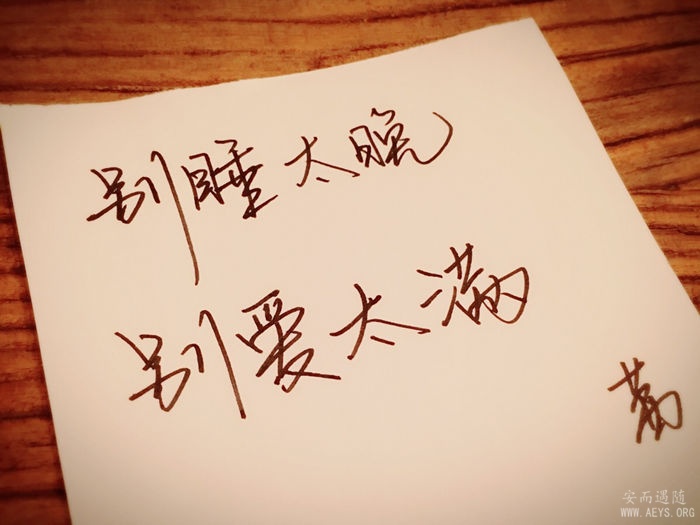 别睡太晚
别爱太满
安而遇随
WWW.AEYS.ORG